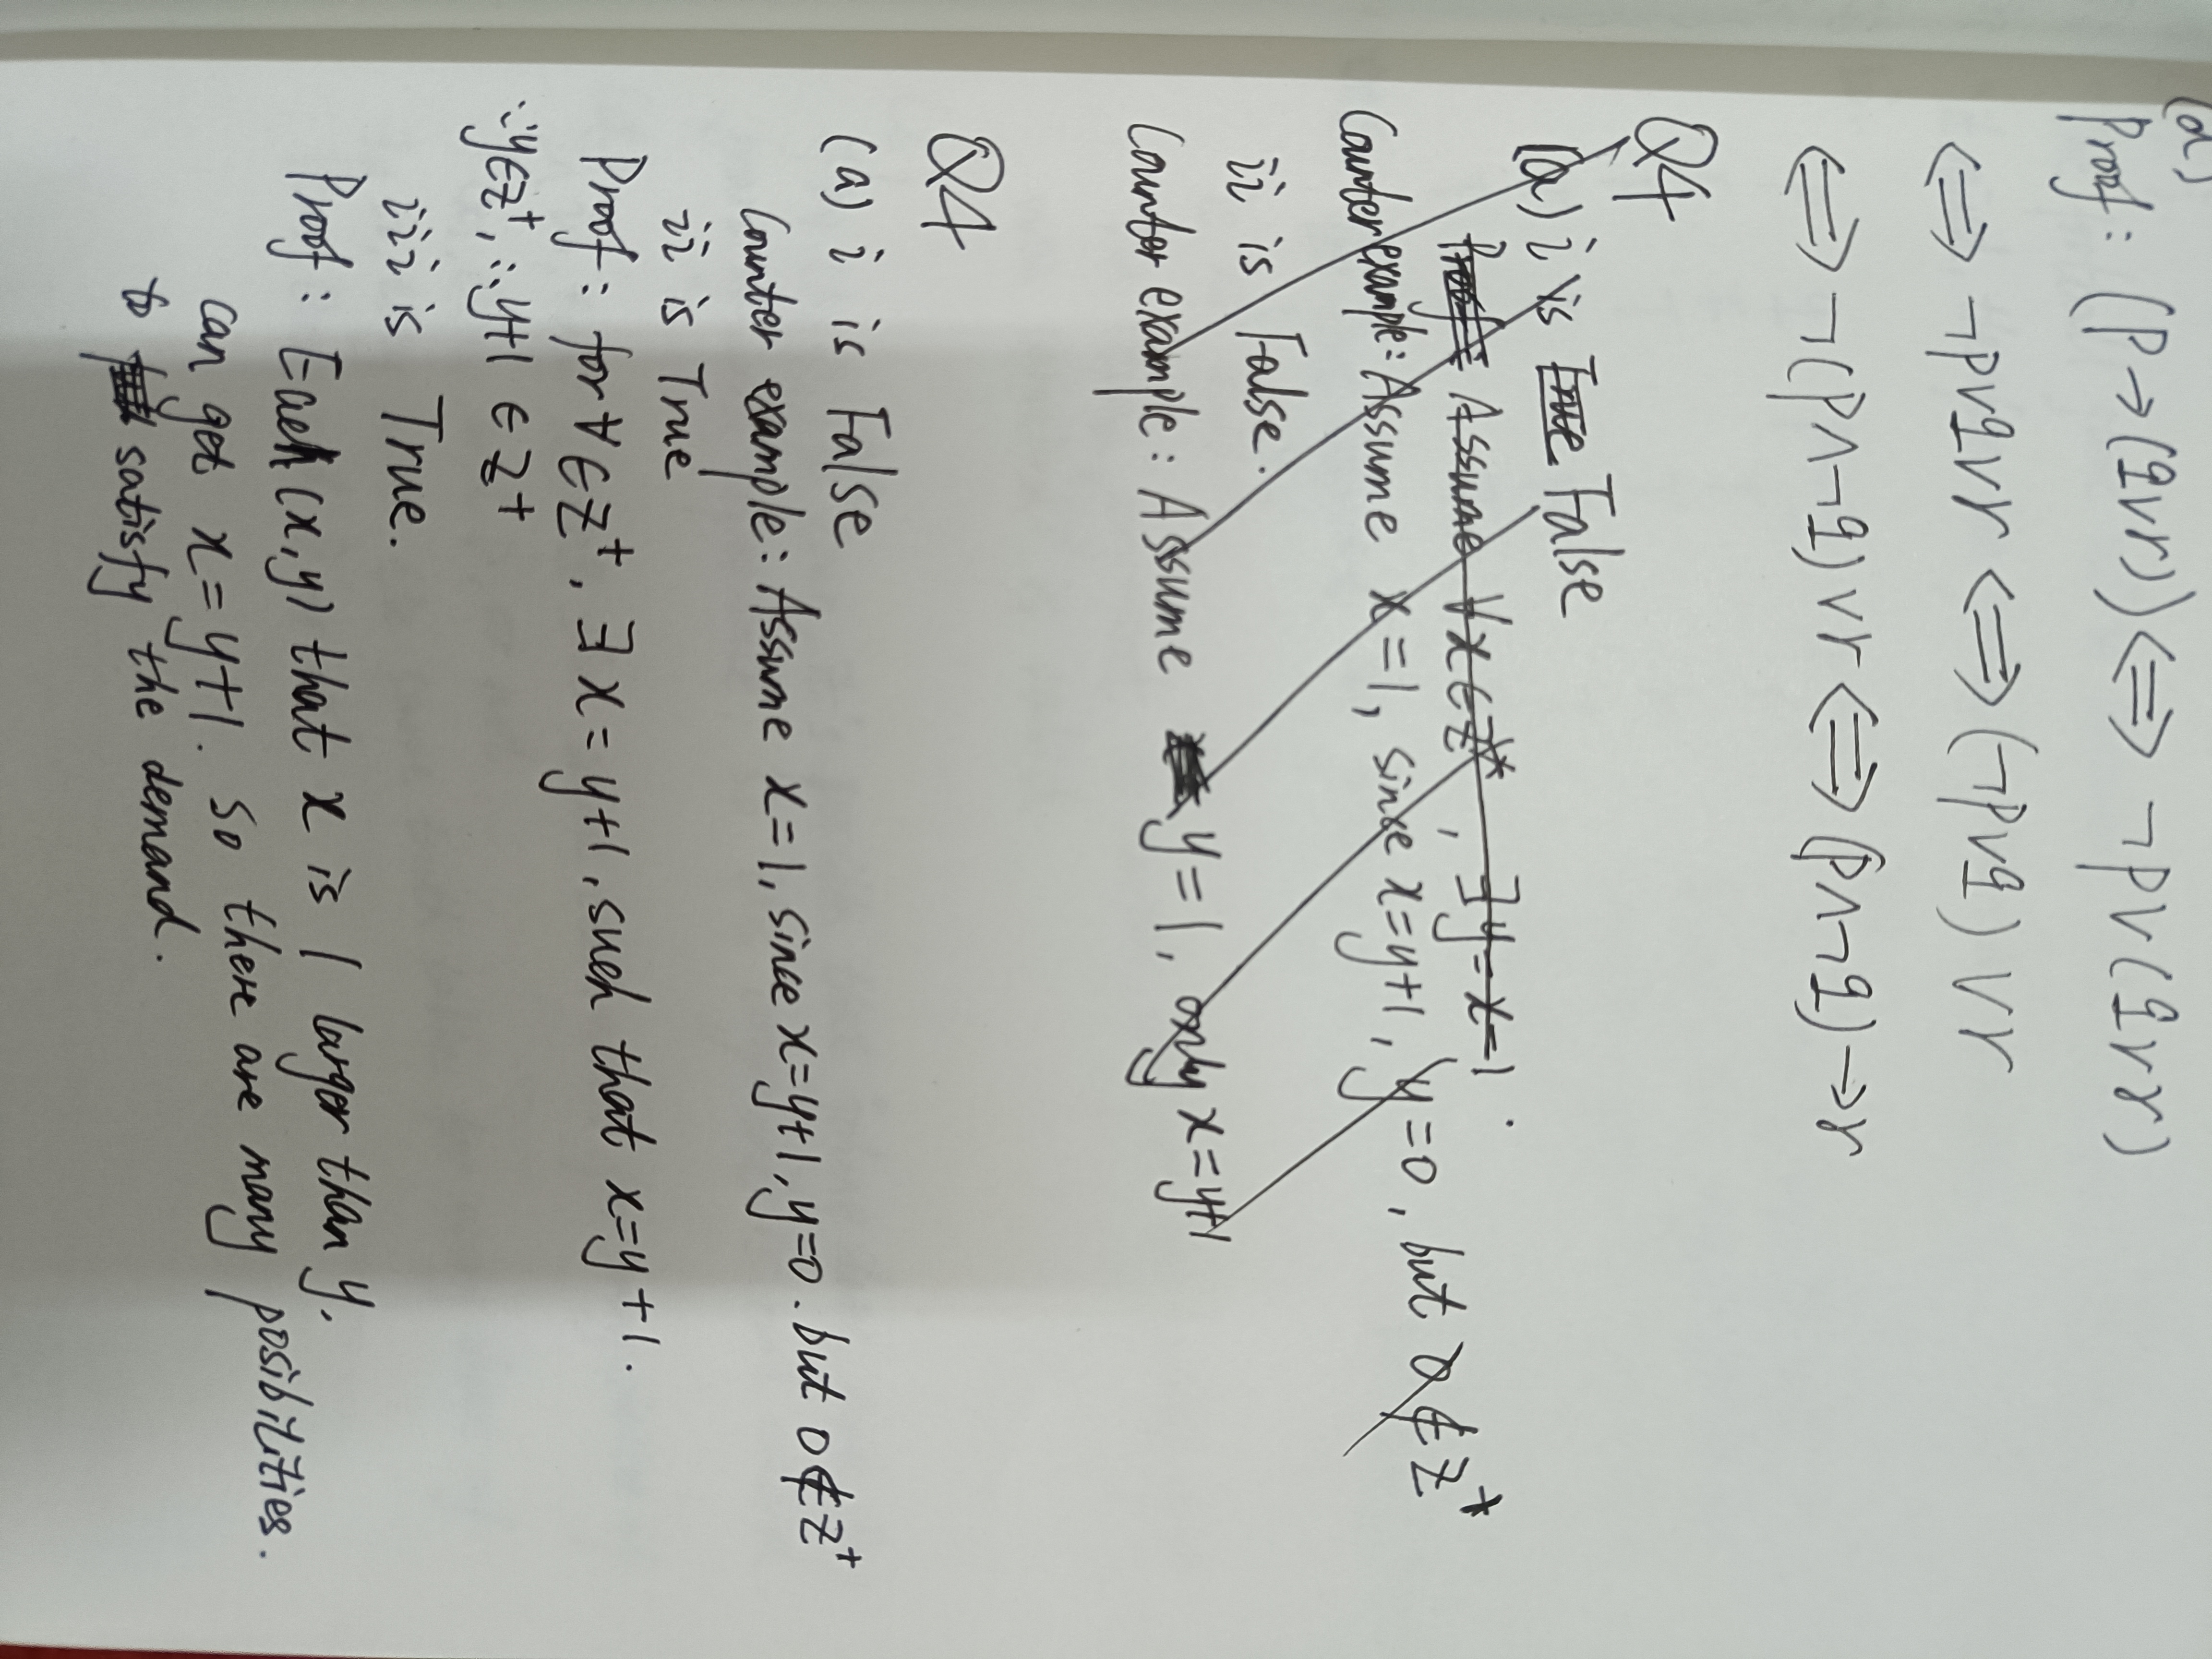 (a)
Proof: (P→(q∨r)) ⟺ ¬P∨(q∨r)
⟺ ¬P∨q∨r ⟺ (¬P∨q)∨r
⟺ ¬(P∧¬q)∨r ⟺ (P∧¬q)→r
Q4
(a) i is True False
Proof: Assume ∀x∈Z*, ∃y=x-1.
Counter example: Assume x=1, since x=y+1, y=0, but 0∉Z*
ii is False.
Counter example: Assume y=1, only x=y+1
Q4
(a) i is False
Counter example: Assume x=1, since x=y+1, y=0. but 0∉Z⁺
ii is True
Proof: for ∀∈Z⁺, ∃x=y+1, such that x=y+1.
∵y∈Z⁺, ∴y+1∈Z⁺
iii is True.
Proof: Each (x,y) that x is 1 larger than y,
can get x=y+1. So there are many posibilities.
to satisfy the demand.